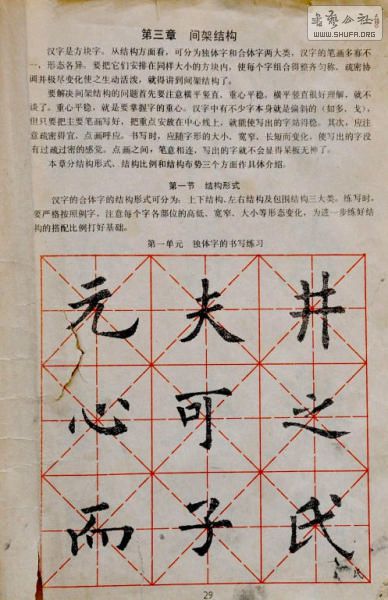 書藝公社
WWW.SHUFA.ORG
第三章 间架结构
汉字是方块字。从结构方面看，可分为独体字和合体字两大类，汉字的笔画多寡不
一，形态各异。要把它们安排在同样大小的方块内，使每个字组合得整齐匀称、疏密协
调并极尽变化使之生动活泼，就得讲到间架结构了。
要解决间架结构的问题首先要注意横平竖直、重心平稳。横平竖直很好理解，就不
谈了。重心平稳，就是要掌握字的重心。汉字中有不少字本身就是偏斜的（如多、戈），
但只要把主要笔画写好，把重点安放在中心线上，就能使写出的字站得稳。其次，应注
意疏密得宜、点画呼应。书写时，应随字形的大小、宽窄、长短而变化，使写出的字没
有过疏过密的感觉。点画之间，笔意相连，写出的字就不会显得呆板无神了。
本章分结构形式、结构比例和结构布势三个方面作具体介绍。
第一节 结构形式
汉字的合体字的结构形式可分为：上下结构、左右结构及包围结构三大类。练写时，
要严格按照例字，注意每个字各部位的高低、宽窄、大小等形态变化，为进一步练好结
构的搭配比例打好基础。
第一单元 独体字的书写练习
元夫井
心可之
而子氏
29